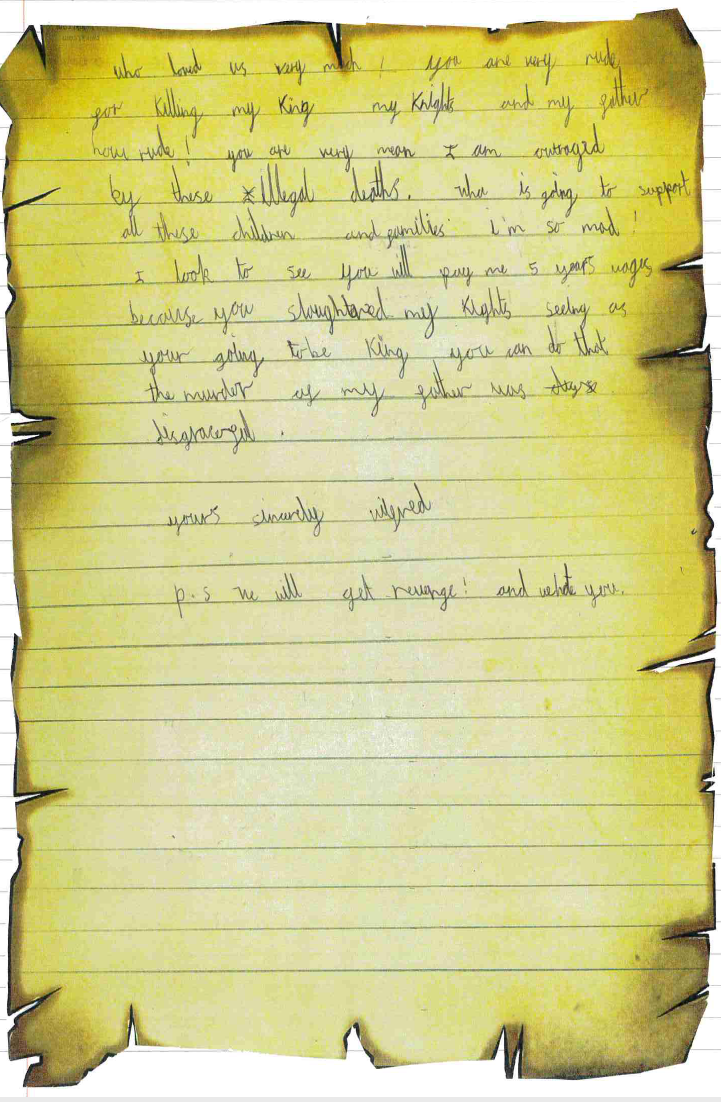 who loved us very much ! you are very rude
for killing my King my Knights and my father
how rude ! you are very mean I am outraged
by these Illegal deaths. who is going to support
all these children and families i'm so mad !
I look to see you will pay me 5 years wages
because you slaughtered my Kights seeing as
your going to be King you can do that
the murder of my father was
disgraceful .
yours sincerly wilfred
p.s we will get revenge! and we hate you.